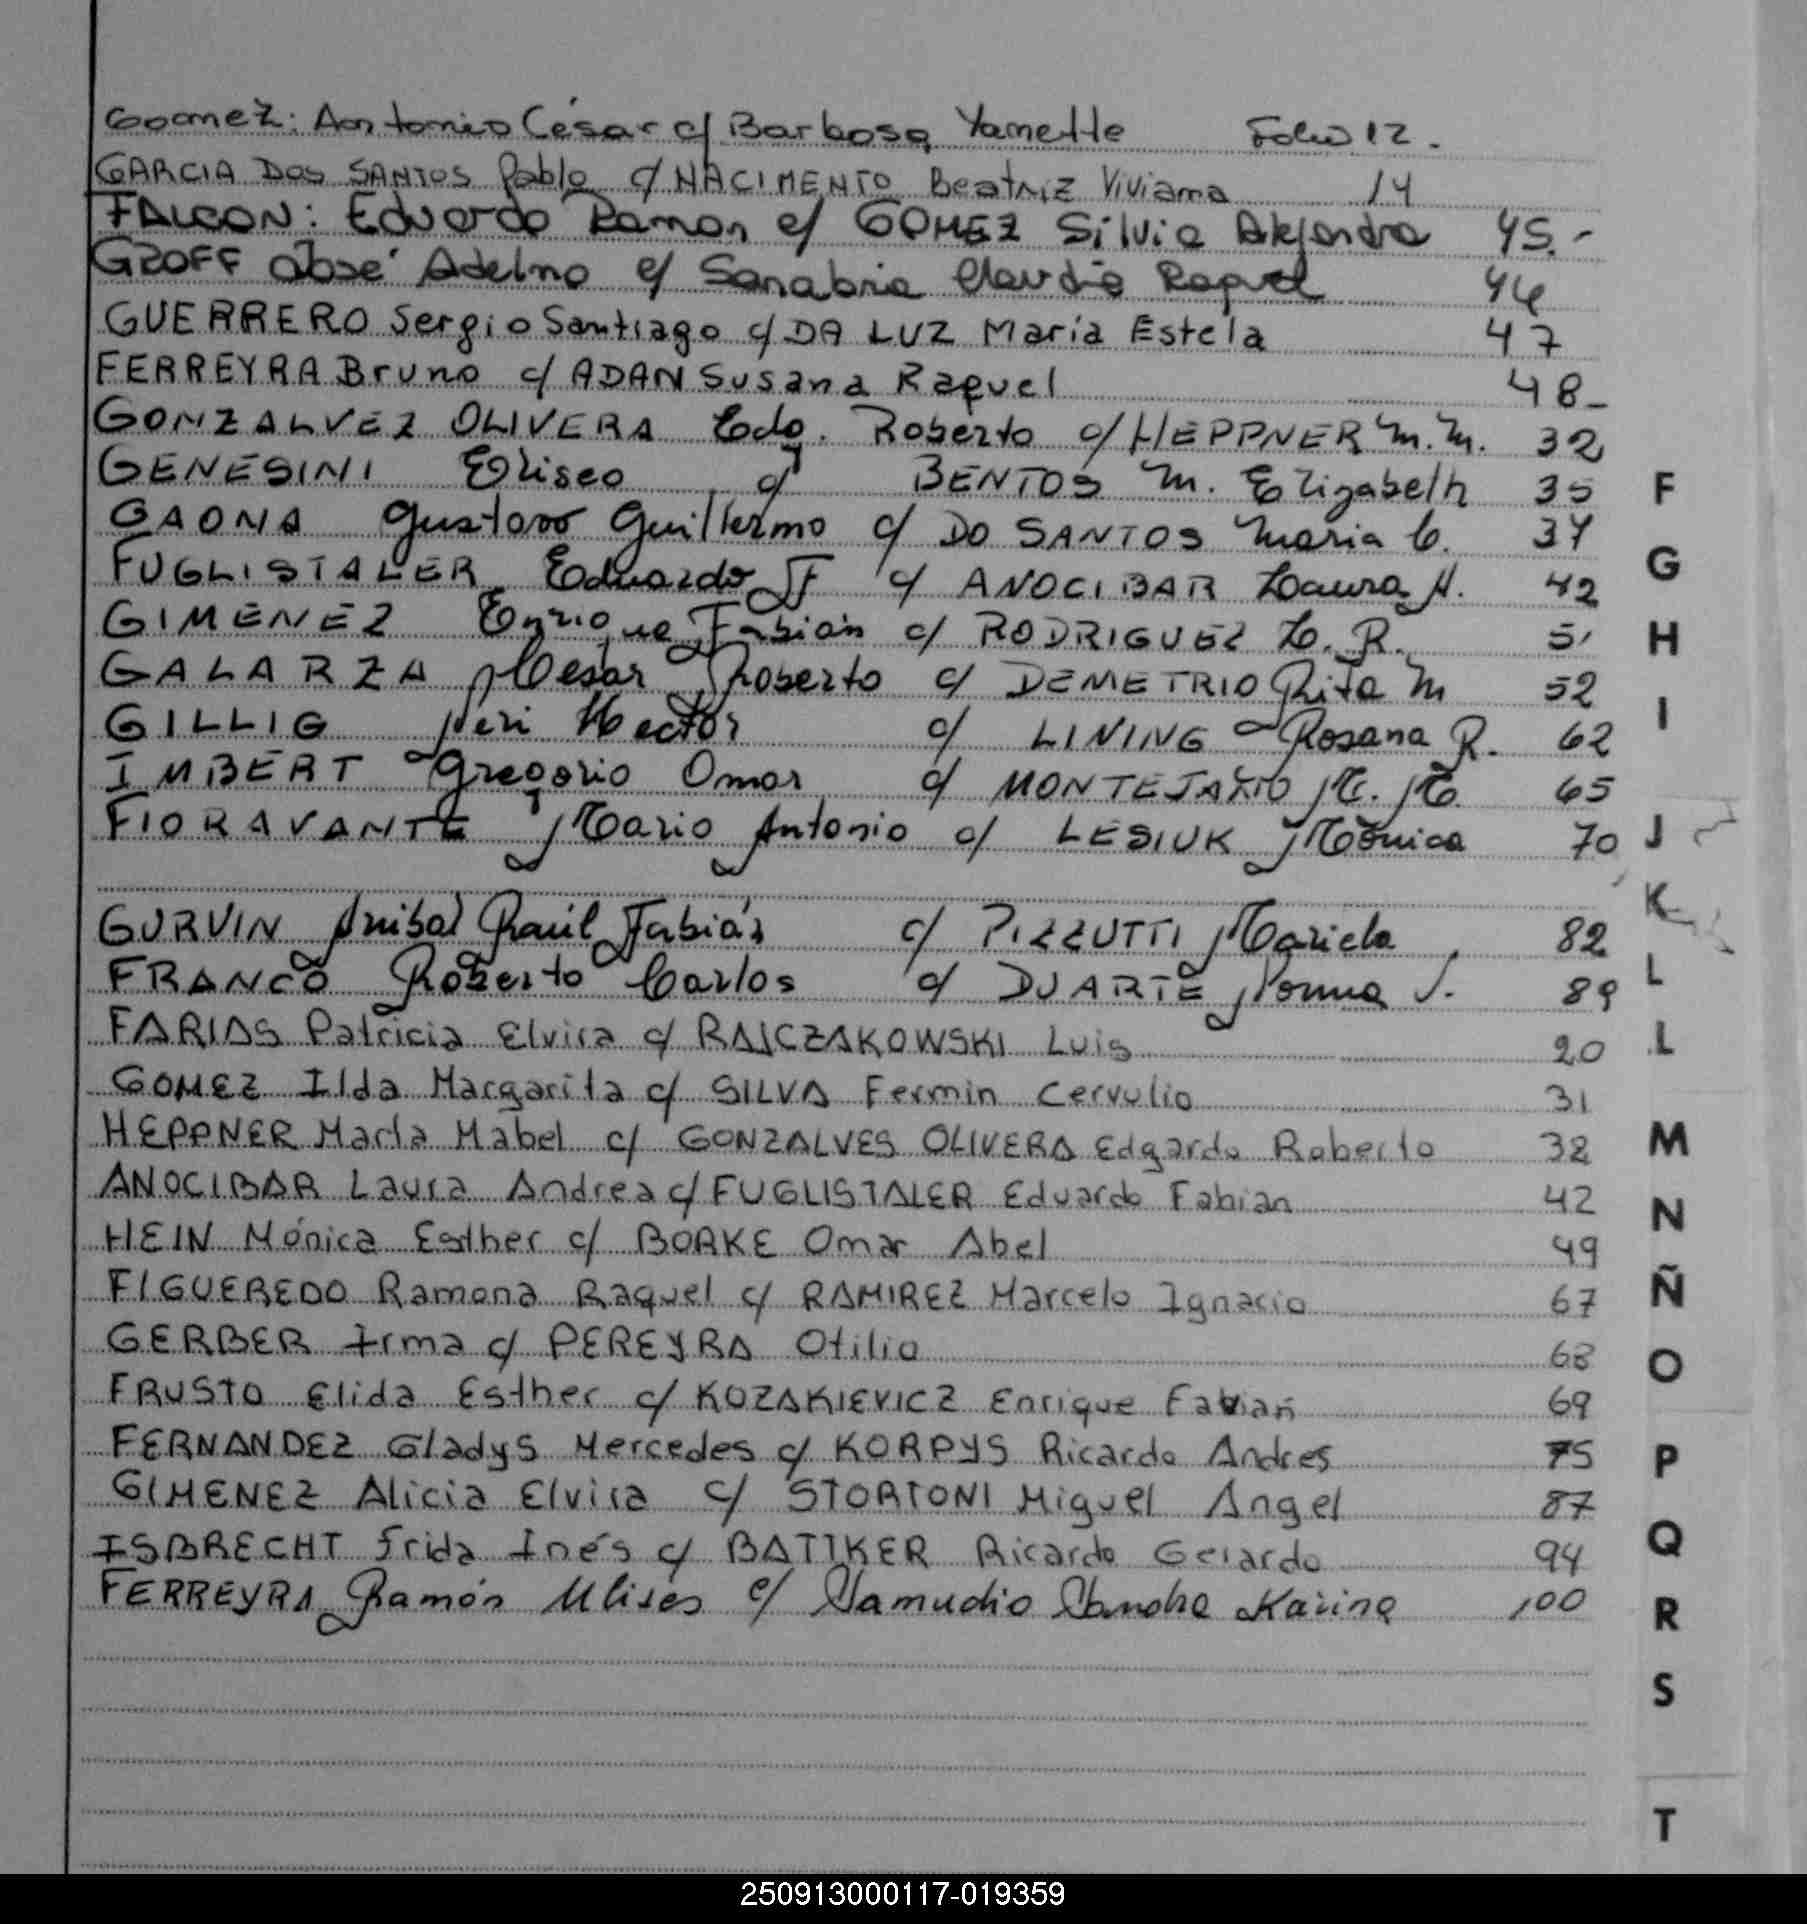 Goomez: Antonio César c/ Barbosa Yanette Folio 12.
GARCIA DOS SANTOS Pablo c/ NACIMENTO Beatriz Viviana 14
FALCON: Eduardo Ramon c/ GOMEZ Silvia Alejandra 45.-
GROFF José Adelmo c/ Sanabria Claudia Raquel 46
GUERRERO Sergio Santiago c/ DA LUZ Maria Estela 47
FERREYRA Bruno c/ ADAN Susana Raquel 48-
GONZALVEZ OLIVERA Edg. Roberto c/ HEPPNER M.M. 32
GENESINI Eliseo c/ BENTOS M. Elizabeth 35
GAONA Gustavo Guillermo c/ DO SANTOS Maria C. 37
FUGLISTALER Eduardo F c/ ANOCIBAR Laura A. 42
GIMENEZ Enrique Fabián c/ RODRIGUEZ L. R. 51
GALARZA Cesar Roberto c/ DEMETRIO Rita M 52
GILLIG Neri Hector c/ LINING Rosana R. 62
IMBERT Gregorio Omar c/ MONTEJANO M. M. 65
FIORAVANTE Mario Antonio c/ LESIUK Mónica 70
GURVIN Anibal Raúl Fabián c/ PIZZUTTI Mariela 82
FRANCO Roberto Carlos c/ DUARTE Norma J. 89
FARIAS Patricia Elvira c/ RAJCZAKOWSKI Luis 20
GOMEZ Ilda Margarita c/ SILVA Fermin Cervulio 31
HEPPNER Marta Mabel c/ GONZALVES OLIVERA Edgardo Roberto 32
ANOCIBAR Laura Andrea c/ FUGLISTALER Eduardo Fabian 42
HEIN Mónica Esther c/ BORKE Omar Abel 49
FIGUEREDO Ramona Raquel c/ RAMIREZ Marcelo Ignacio 67
GERBER Irma c/ PEREYRA Otilio 68
FRUSTO Elida Esther c/ KOZAKIEVICZ Enrique Fabian 69
FERNANDEZ Gladys Mercedes c/ KORPYS Ricardo Andres 75
GIMENEZ Alicia Elvira c/ STORTONI Miguel Angel 87
ISBRECHT Frida Inés c/ BATIKER Ricardo Gerardo 94
FERREYRA Ramón Ulises c/ Samudio Sandra Karina 100
F
G
H
I
J
K
L
L
M
N
Ñ
O
P
Q
R
S
T
250913000117-019359